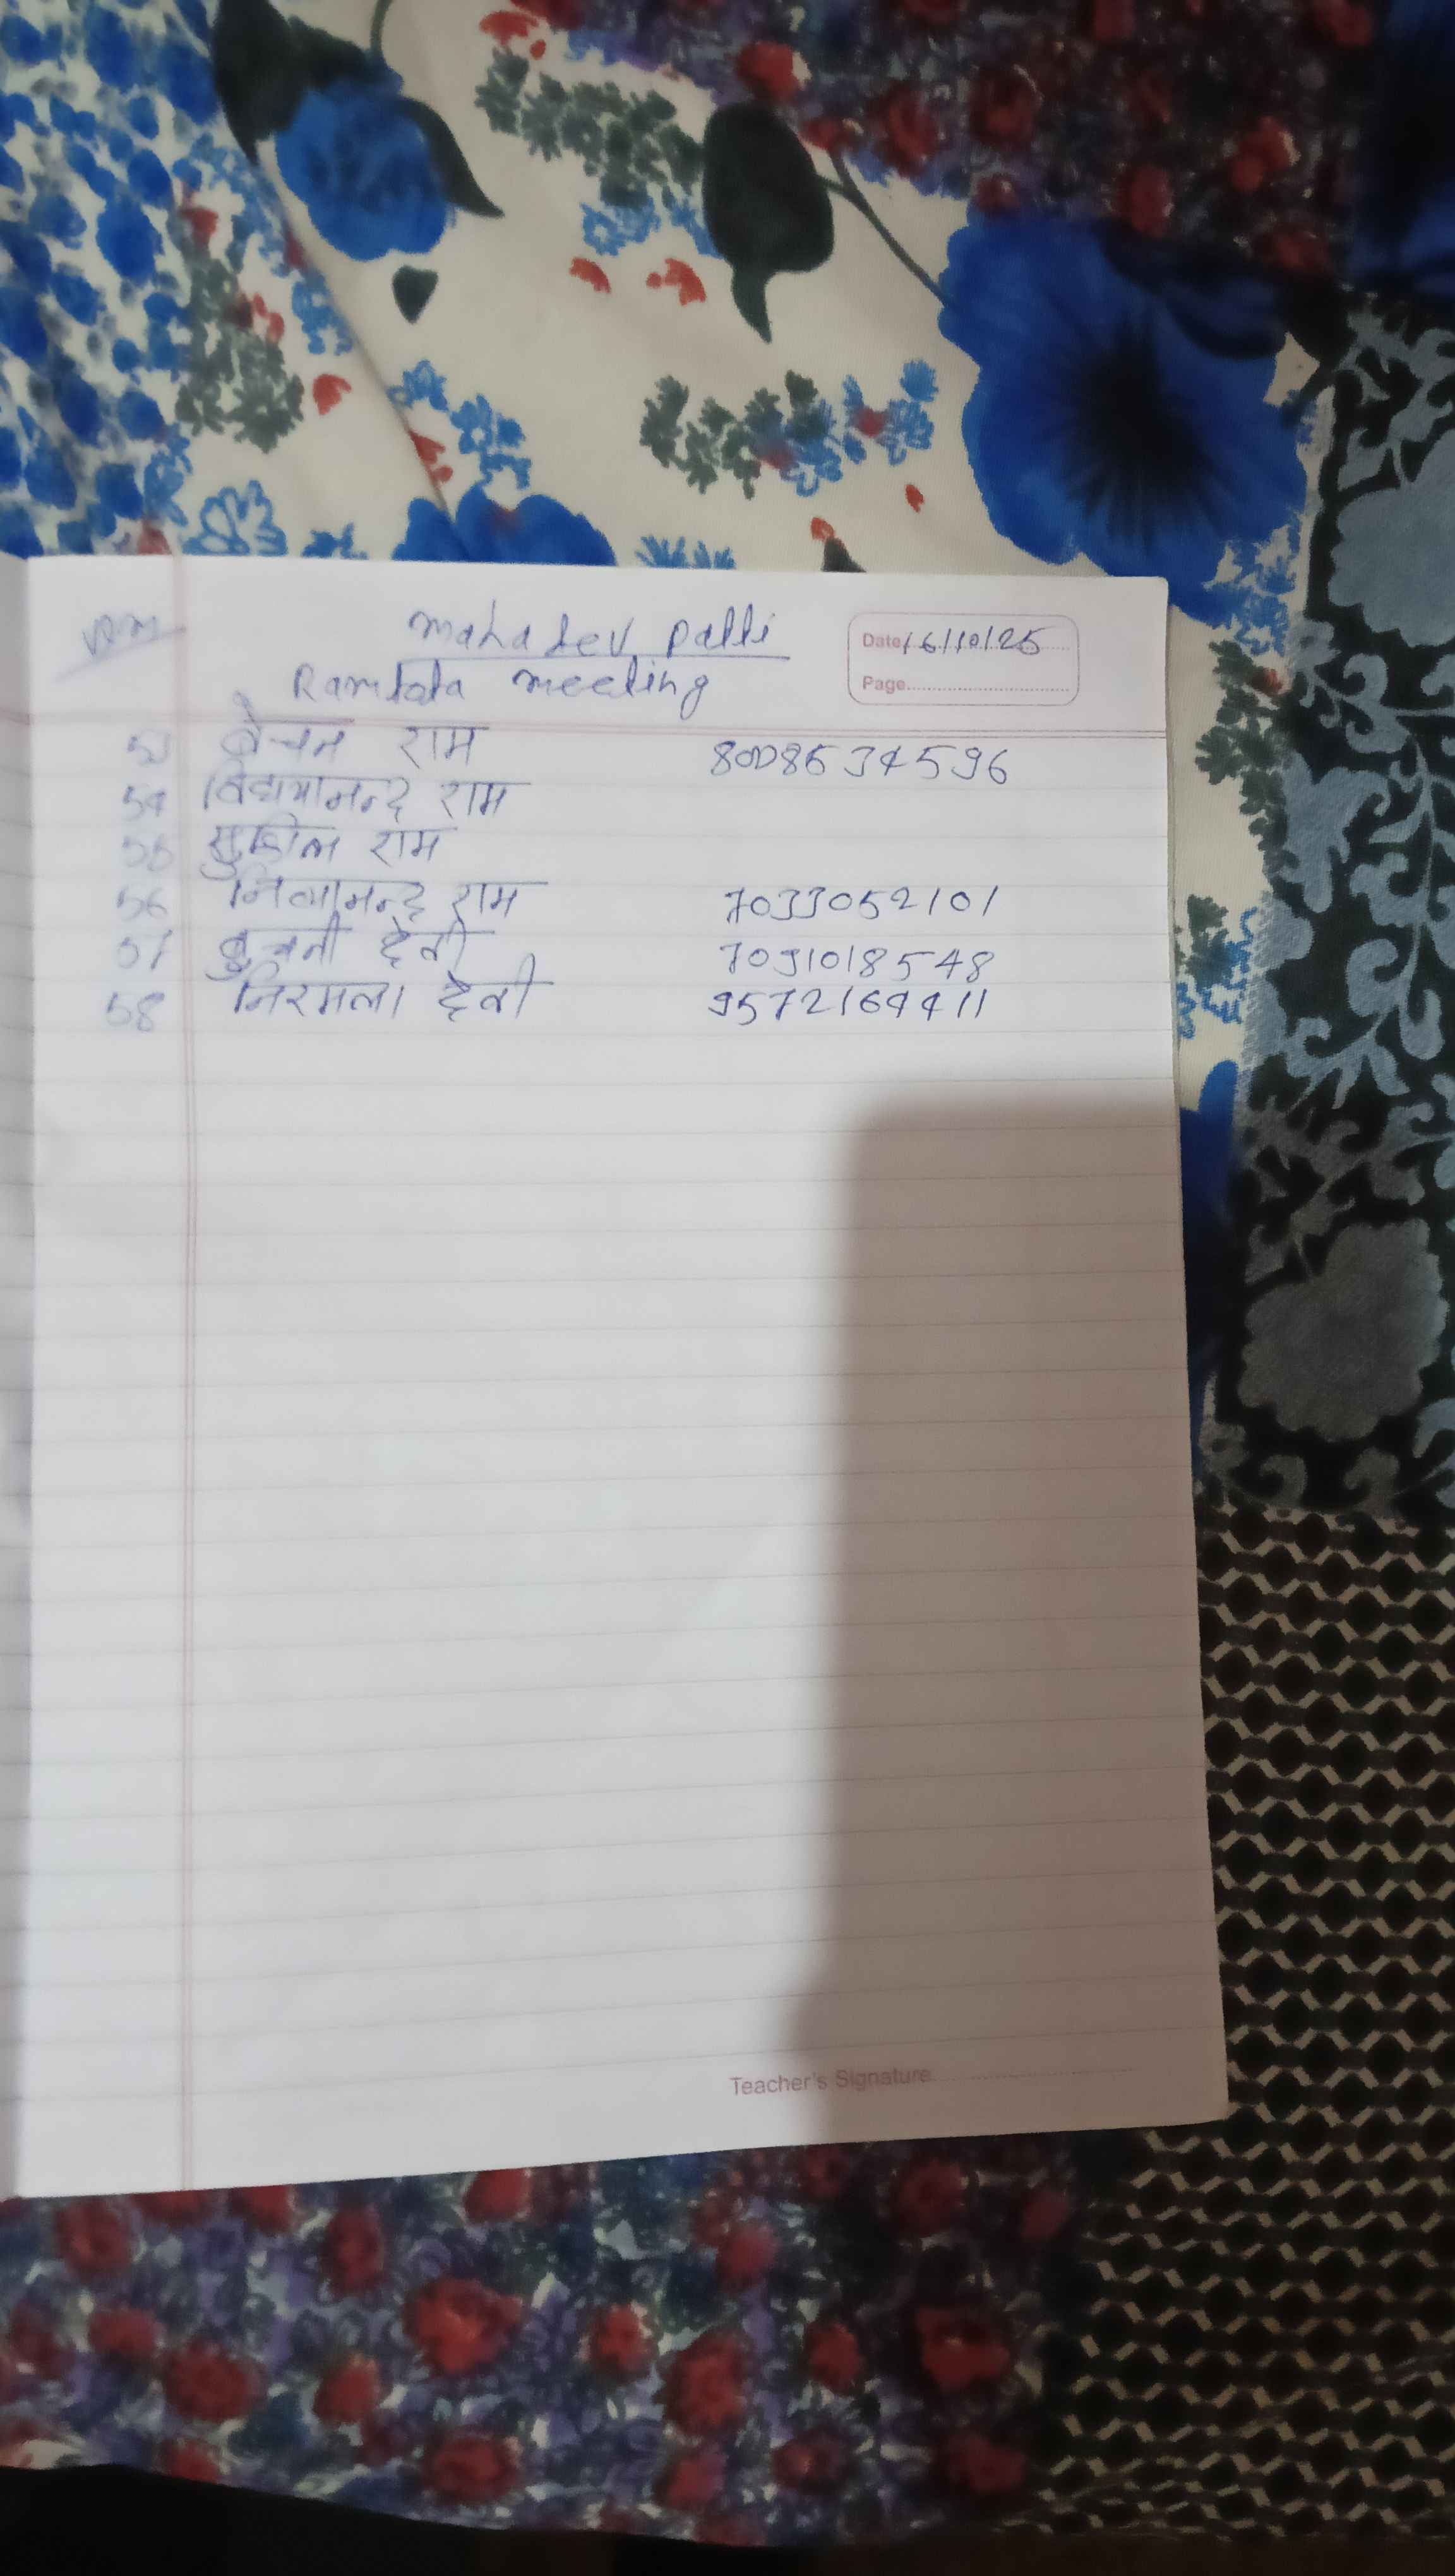 Mahadev Palli
Date 16/10/25
Ramtola meeting
Page
53 बेचन राम 8008634596
54 विद्यानन्द राम
55 सुशील राम
56 नित्यानन्द राम 7033052101
57 बुचनी देवी 7091018548
58 निरमला देवी 9572164411
Teacher's Signature